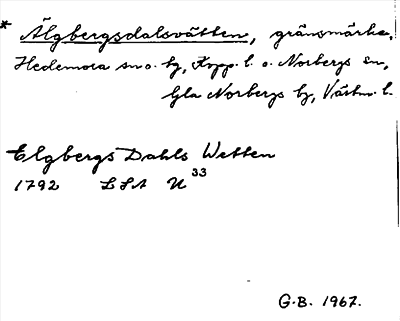 * Älgbergsdalsvätten, gränsmärke,
Hedemora sn o. hg, Kopp. l. o. Norbergs sn,
Gla Norbergs bg, Västm. l.
Elgbergs Dahls Wetten
1792 LSA U 33
G.B. 1967.